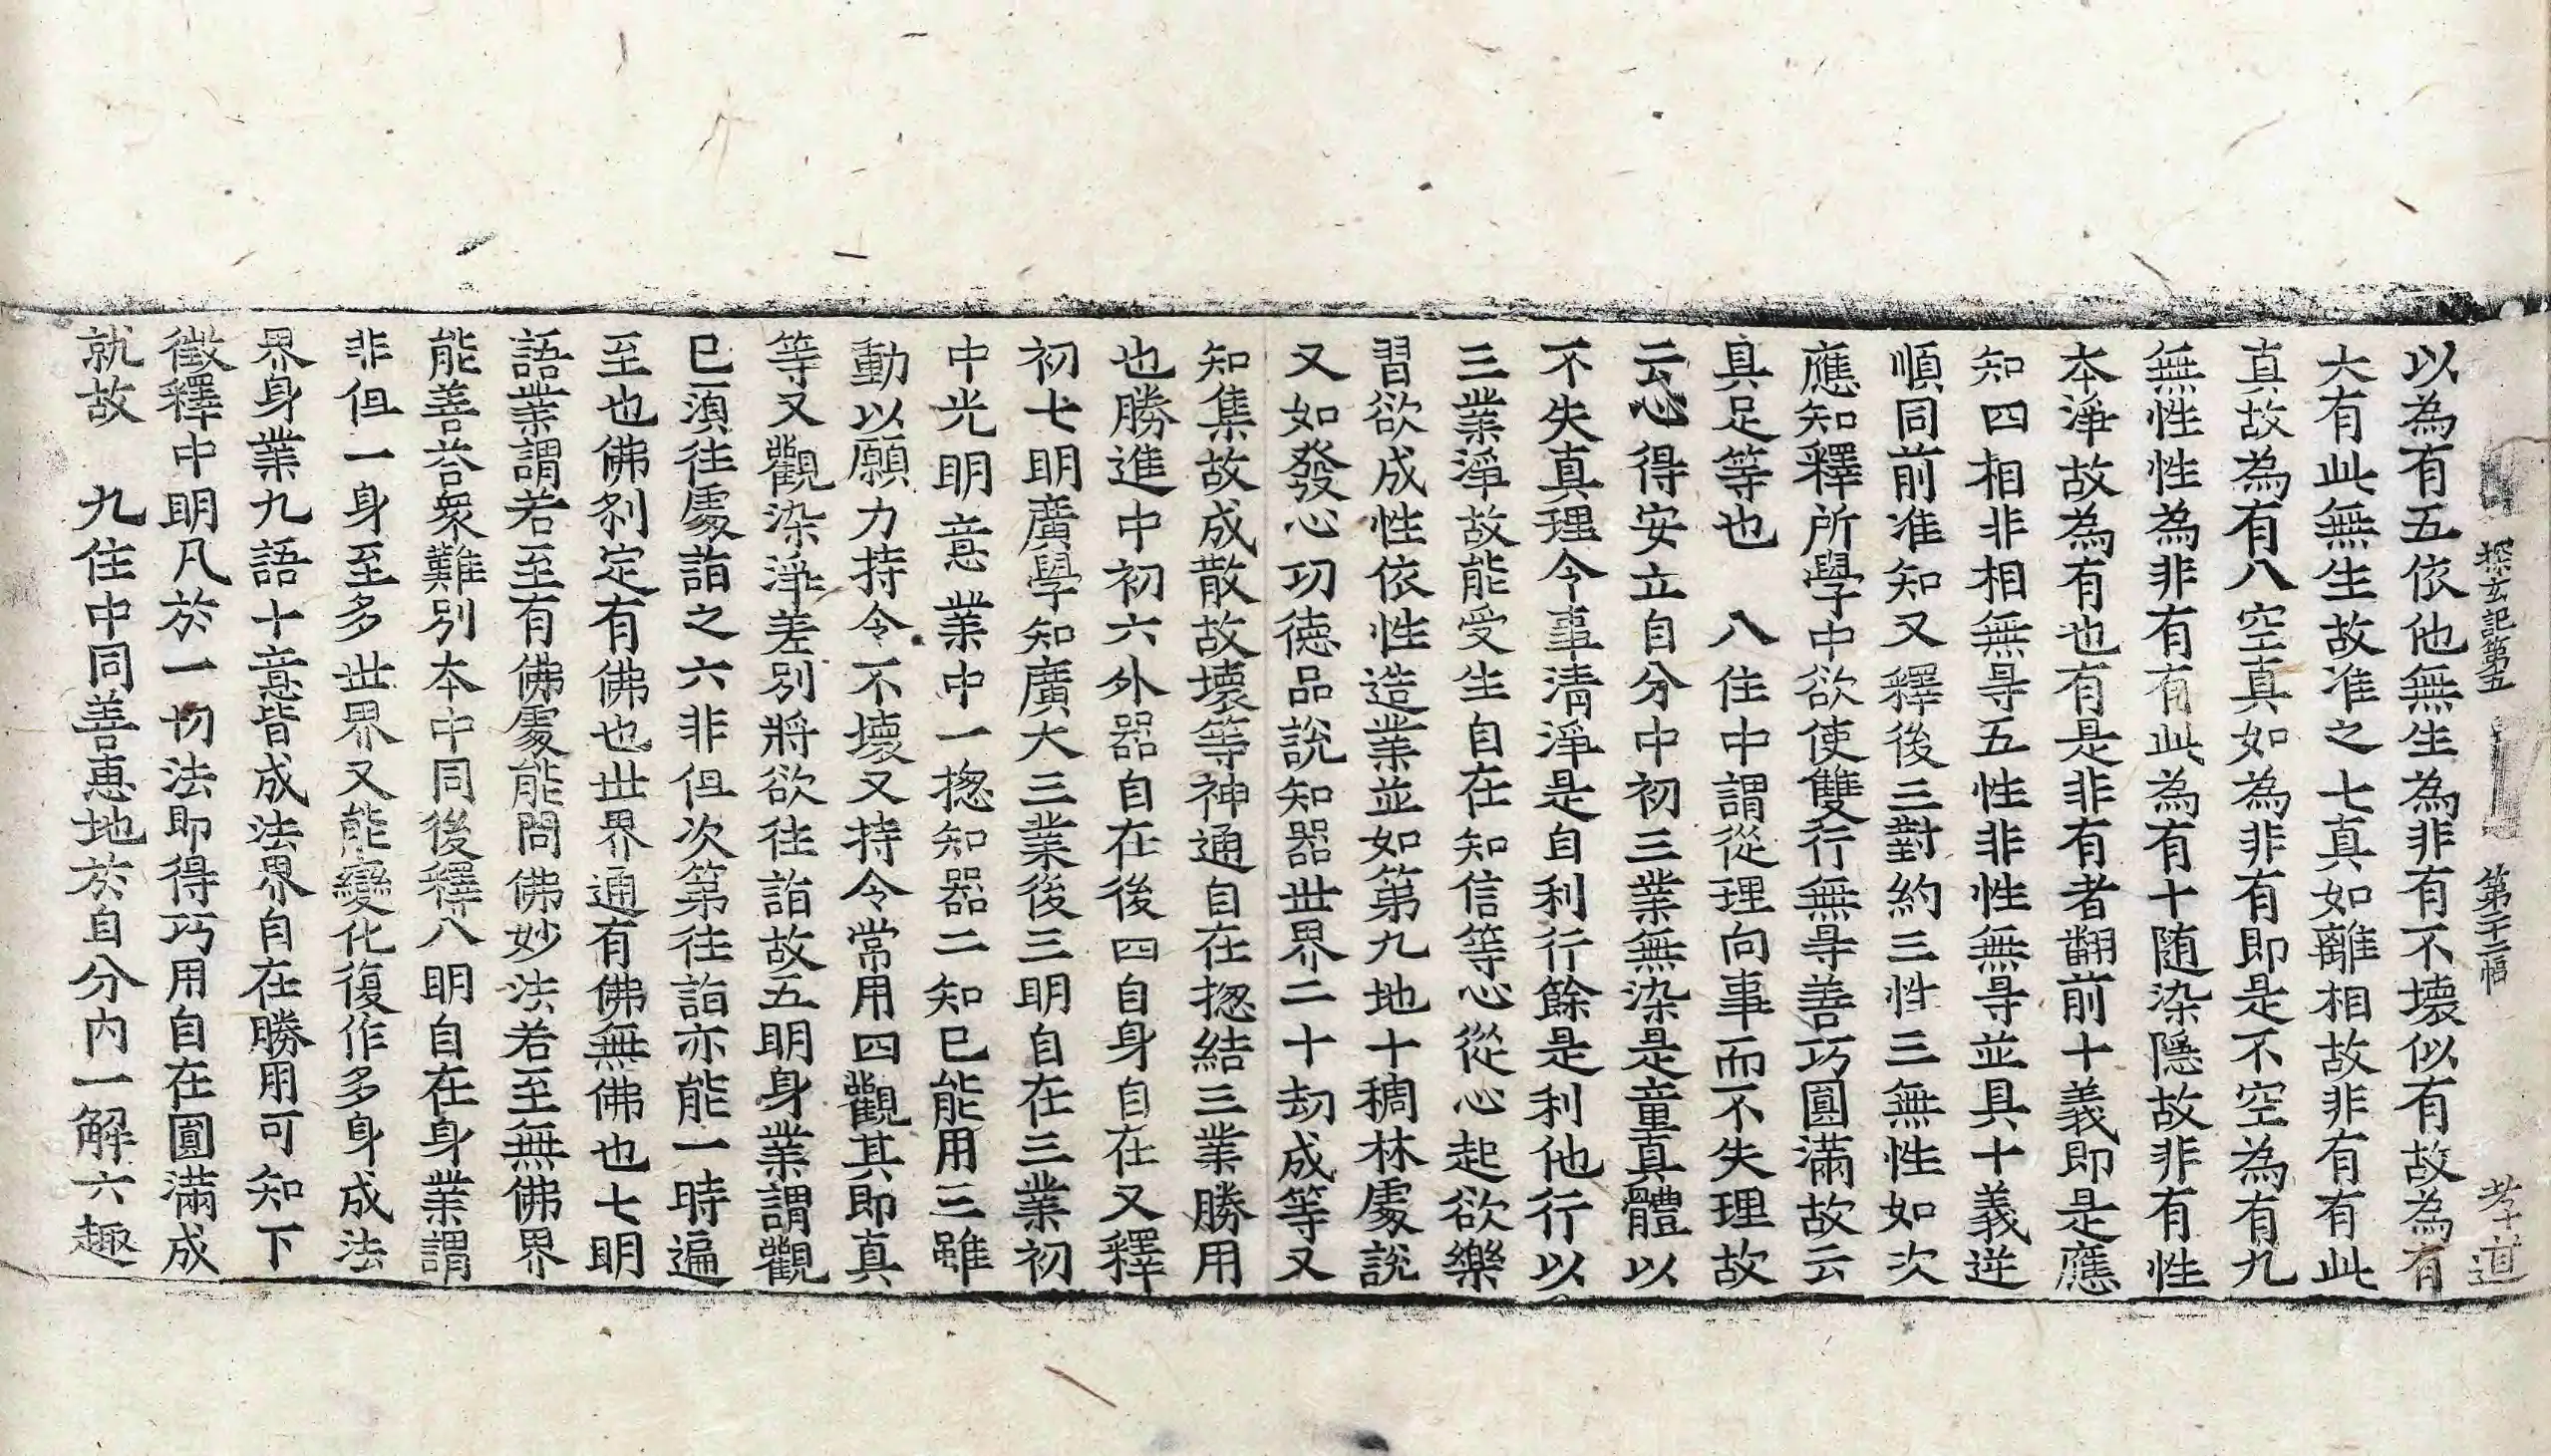 探玄記第五 第二十二幅 孝道
以為有五依他無生為非有不壞似有故為有
六有此無生故准之七真如離相故非有有此
真故為有八空真如為非有即是不空為有九
無性性為非有有此為有十随染隱故非有性
本淨故為有也有是非有者翻前十義即是應
知四相非相無㝵五性非性無㝵並具十義逆
順同前准知又釋後三對約三性三無性如次
應知釋所學中欲使雙行無㝵善巧圓滿故云
具足等也　八住中謂從理向事而不失理故
云心得安立自分中初三業無染是童真體以
不失真理令事清淨是自利行餘是利他行以
三業淨故能受生自在知信等心從心起欲樂
習欲成性依性造業並如第九地十稠林處說
又如發心功德品說知器世界二十劫成等又
知集故成散故壞等神通自在揔結三業勝用
也勝進中初六外器自在後四自身自在又釋
初七明廣學知廣大三業後三明自在三業初
中光明意業中一揔知器二知已能用三雖
動以願力持令不壞又持令常用四觀其即真
等又觀染淨差別將欲往詣故五明身業謂觀
已須往處詣之六非但次第往詣亦能一時遍
至也佛刹定有佛也世界通有佛無佛也七明
語業謂若至有佛處能問佛妙法若至無佛界
能善荅衆難別本中同後釋八明自在身業謂
非但一身至多世界又能變化復作多身成法
界身業九語十意皆成法界自在勝用可知下
徵釋中明凡於一切法即得巧用自在圓滿成
就故　九住中同善恵地於自分内一解六趣